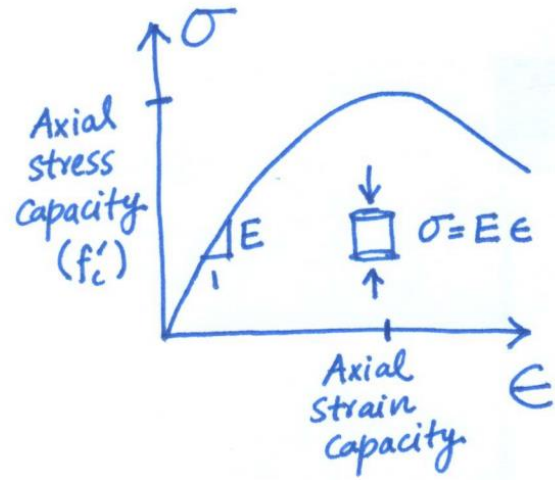 σ
Axial
stress
capacity
(f'c)
E
1
σ = E ϵ
Axial
strain
capacity
ϵ